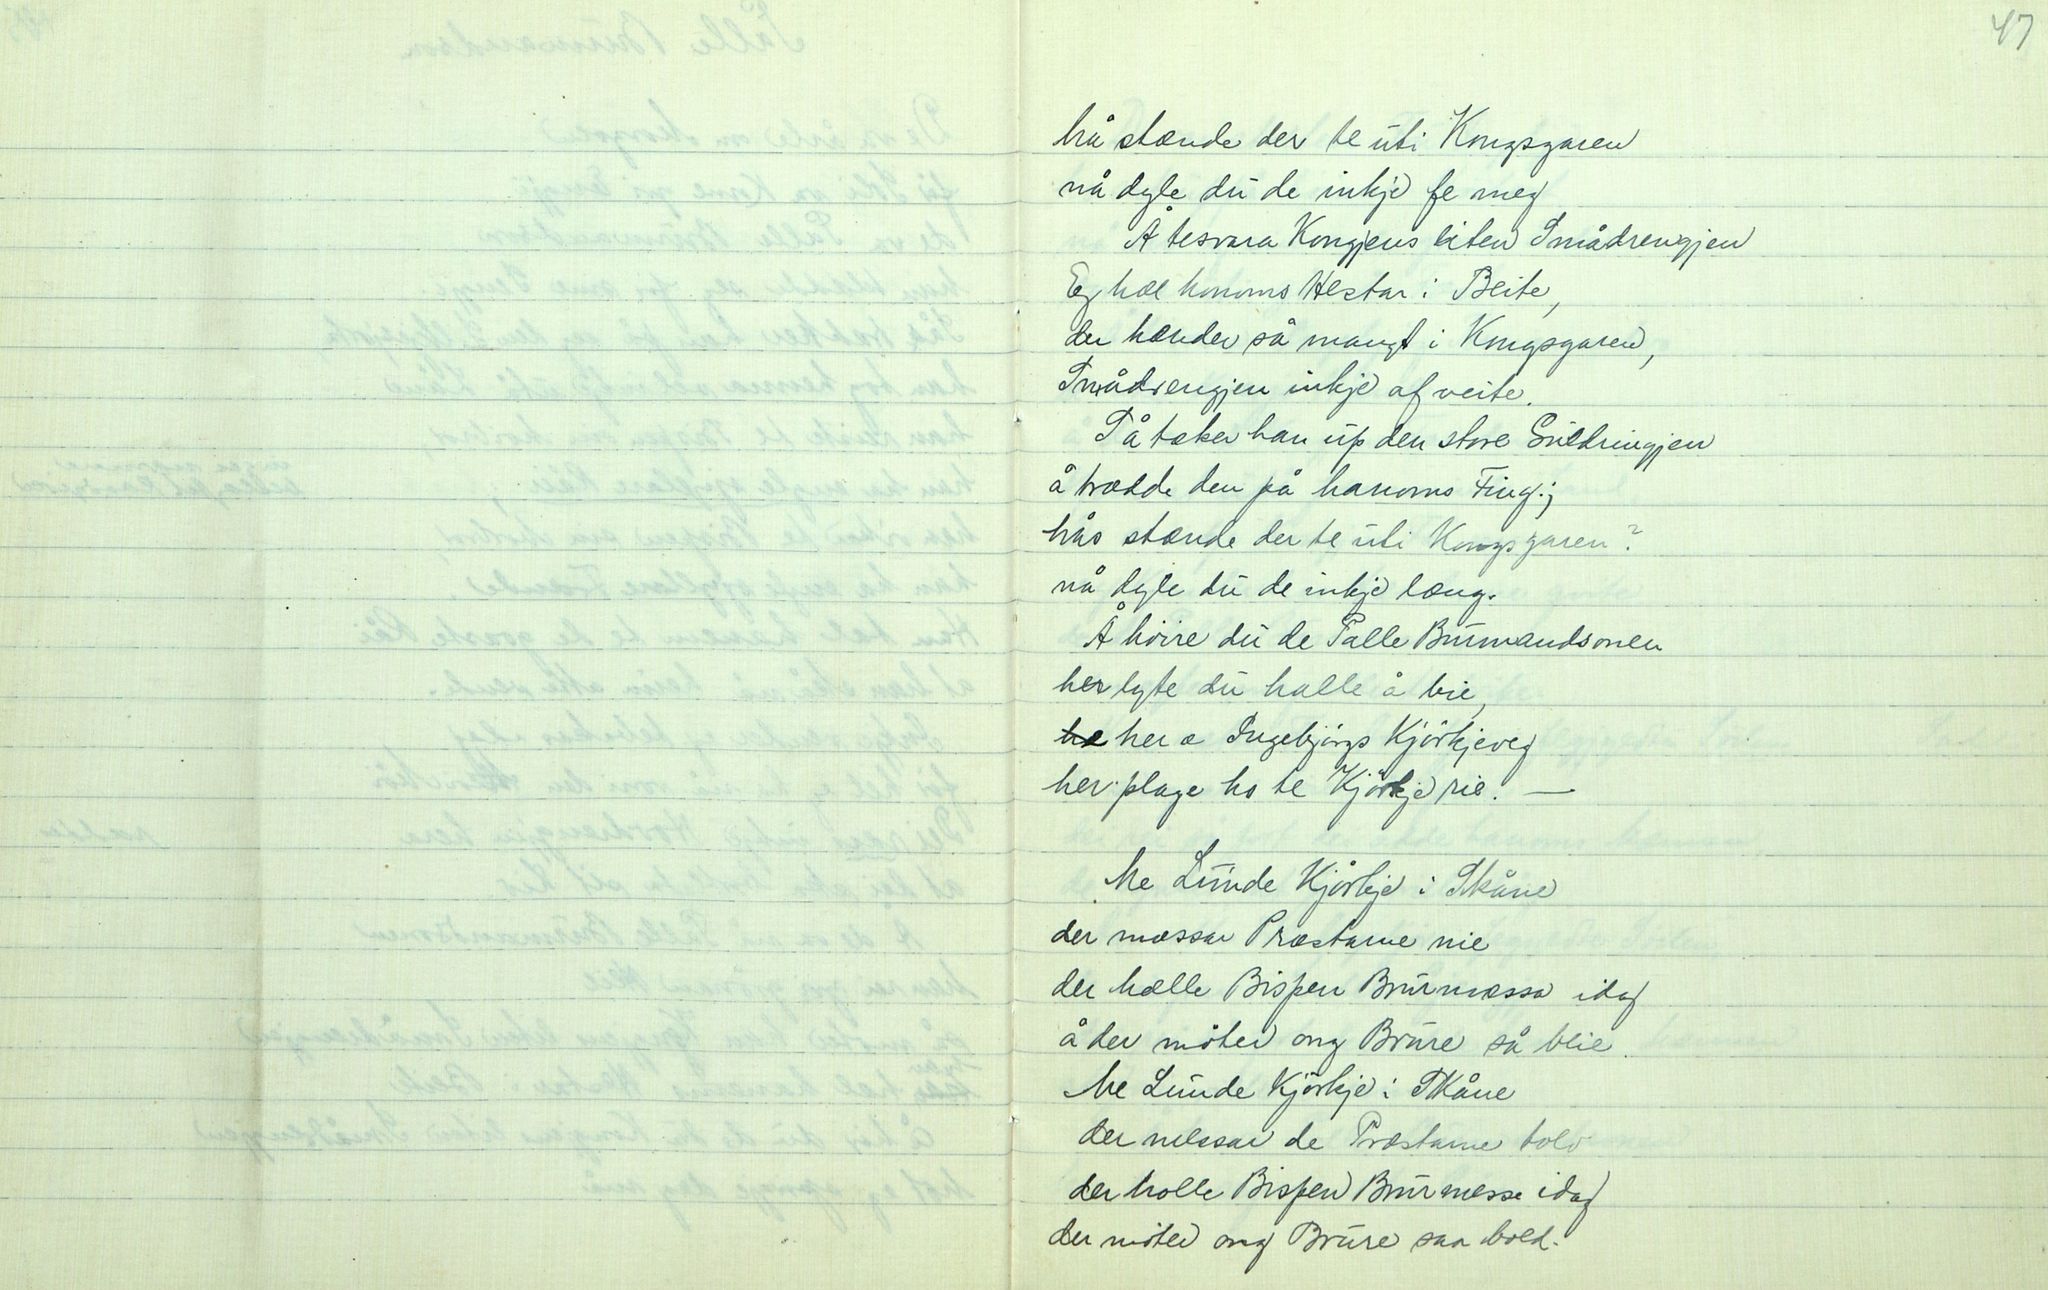 47
hå stænde der te uti Kongsgaren
nå dyle du de inkje fe meg
Å tesvara Kongjens liten Smådrengjen
Eg hæl honoms Hestar i Beite,
der hænder så mangt i Kongsgaren,
Smådrengjen inkje af veite.
Då tæker han up den store Guldringjen
å trædde den på hanoms Fing.;
hås stænde der te uti Kongsgaren?
nå dyle du de inkje læng.
Å höire du de Palle Burmandsonen
her lyte du halle å bie,
her æ Ingebjörgs Kjörkjeveg
her plage ho te Kjörkje rie. —
Me Lunde Kjörkje i Skåne
der mæssar Præstarne nie
der hælle Bispen Brurmæssa idag
å der möter ong Brure så blie
Me Lunde Kjörkje i Skåne
der messar de Præstarne tolv
der holle Bispen Brurmesse idag
der möter ong Brure saa bold.